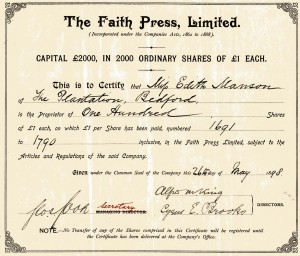 The Faith Press, Limited.
(Incorporated under the Companies Acts, 1862 to 1888).
CAPITAL £2000, IN 2000 ORDINARY SHARES OF £1 EACH.
This is to Certify that Miss Edith Manson
of The Plantation, Bedford,
is the Proprietor of One Hundred Shares
of £1 each, on which £1 per Share has been paid, numbered 1691
to 1790 inclusive, in the Faith Press, Limited, subject to the
Articles and Regulations of the said Company.
Given under the Common Seal of the Company this 26th day of May 1898.
secretary
MANAGING DIRECTOR
DIRECTORS.
Cyrus E. Brooks
NOTE.—No Transfer of any of the Shares comprised in this Certificate will be registered until
the Certificate has been delivered at the Company's Office.